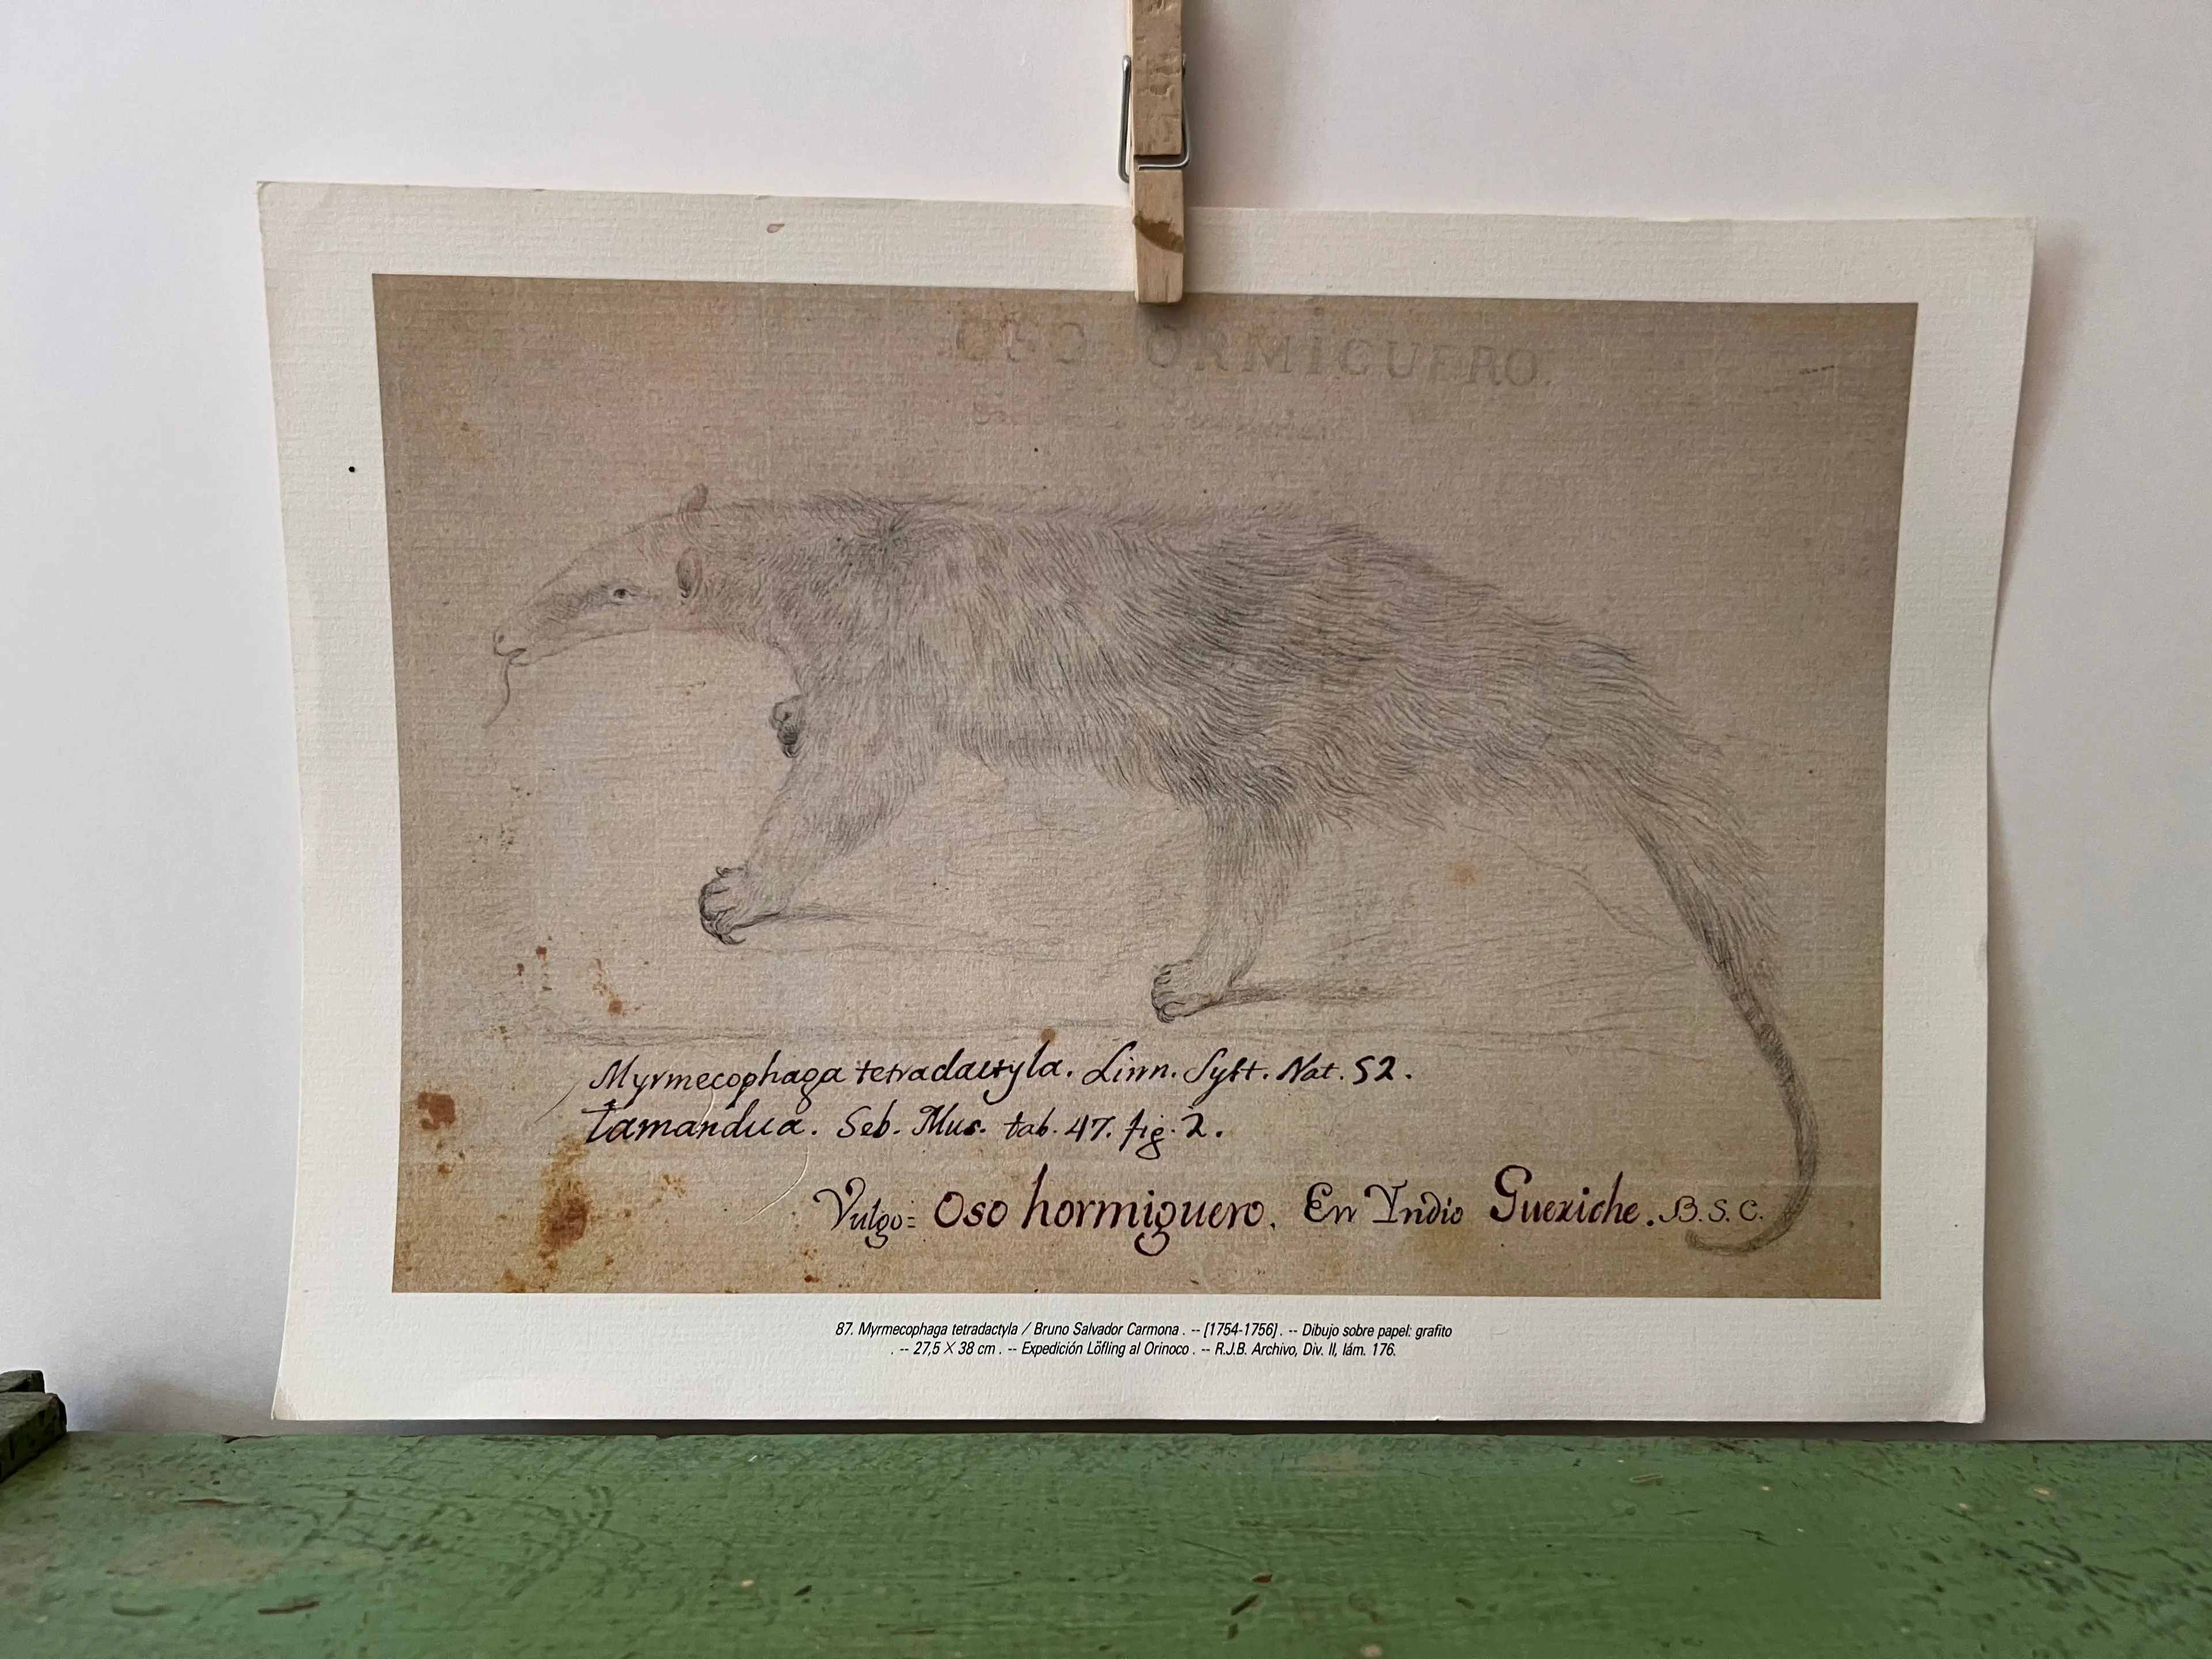 OSO ORMIGUERO.
Myrmecophaga tetradactyla. Linn. Syst. Nat. 52.
tamandua. Seb. Mus. tab. 47. fig. 2.
Vulgo= Oso hormiguero. En Yndio Gueriche. B. S. C.
87. Myrmecophaga tetradactyla / Bruno Salvador Carmona . -- [1754-1756] . -- Dibujo sobre papel: grafito
. -- 27,5 X 38 cm . -- Expedición Löfling al Orinoco . -- R.J.B. Archivo, Div. II, lám. 176.